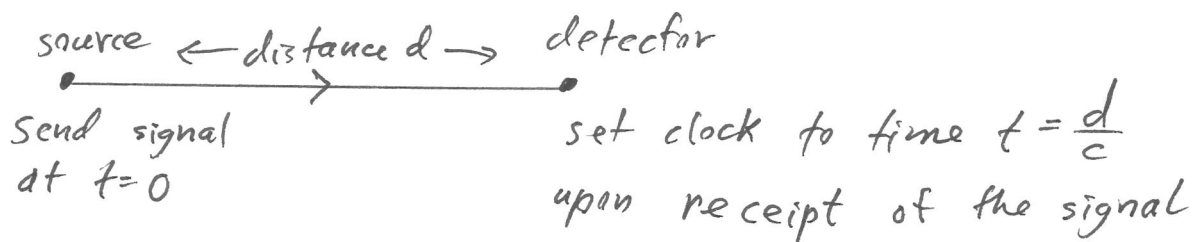 source ← distance d → detector
send signal
at t=0
set clock to time t = d/c
upon receipt of the signal